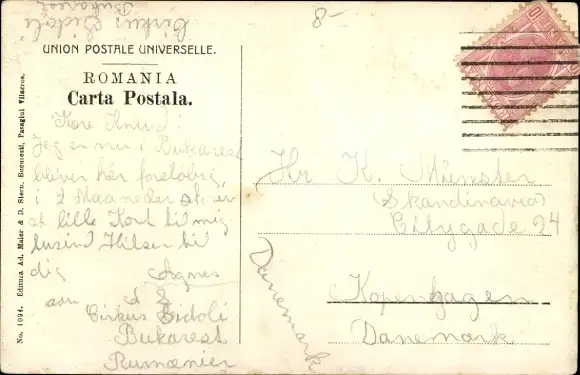 Cirkus Bidoli
Bukarest
8-
UNION POSTALE UNIVERSELLE.
ROMANIA
Carta Postala.
No. 1094. Editura Ad. Maier & D. Stern, Bucuresti, Pasagiul Vilacros.
Kære Knud!
Jeg er nu i Bukarest
bliver her foreløbig,
i 2 Maaneder
et lille Kort til mig
tusind Hilsen til
dig
Agnes
Cirkus Bidoli
Bukarest
Rumænien
Hr. K. Münster
(Skandinavia)
Citygade 24
Kopenhagen
Danemark
Danemark